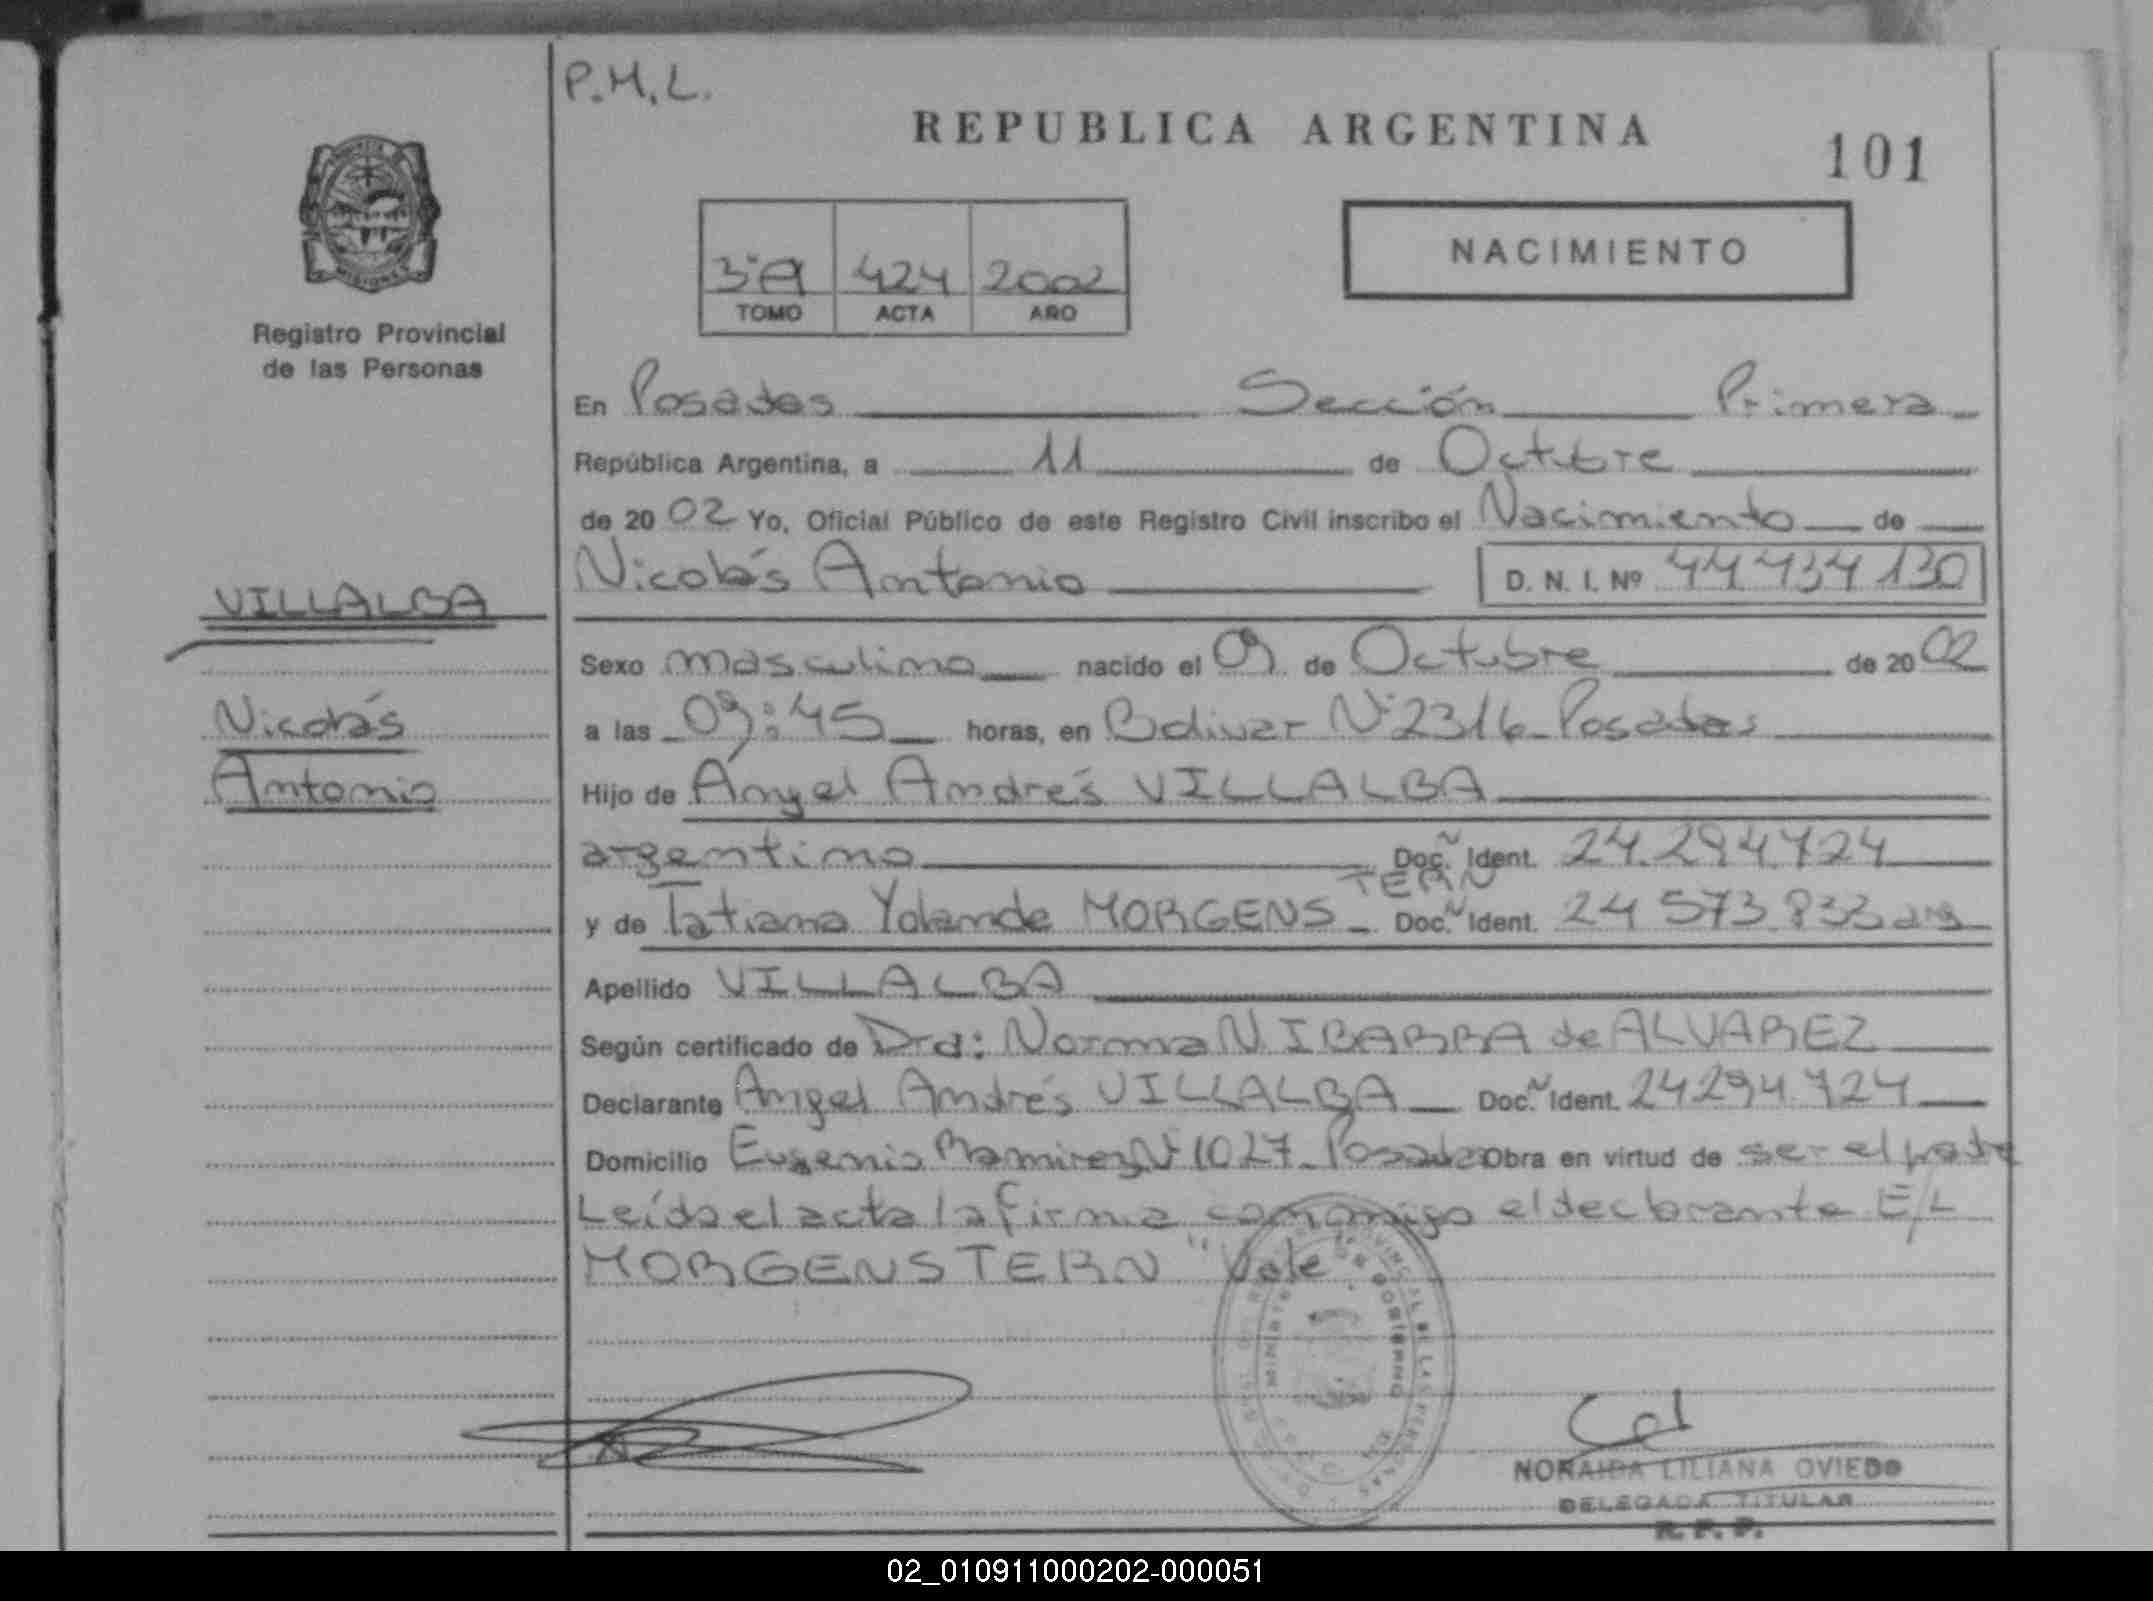 P.M.L.
REPUBLICA ARGENTINA
101
3ºA 424 2002
TOMO ACTA AÑO
NACIMIENTO
MISIONES
Registro Provincial
de las Personas
En Posadas Sección Primera
República Argentina, a 11 de Octubre
de 20 02 Yo, Oficial Público de este Registro Civil inscribo el Nacimiento de
Nicolás Antonio D. N. I. Nº 44.434.130
VILLALBA
Sexo masculino nacido el 09 de Octubre de 20 02
Nicolás
a las 09:45 horas, en Bolivar Nº 2316 Posadas
Antonio
Hijo de Ángel Andrés VILLALBA
argentino Doc. Ident. 24.294.724
TERN
y de Tatiana Yolande MORGENS Doc. Ident. 24 573.833 arg
Apellido VILLALBA
Según certificado de Dra: Norma N. IBARRA de ALVAREZ
Declarante Angel Andrés VILLALBA Doc. Ident. 24294.724
Domicilio Eugenio Ramirez Nº 1027 Posadas Obra en virtud de ser el padre
Leída el acta la firma conmigo el declarante E/L
MORGENSTERN "Vale"
MINISTERIO DE GOBIERNO
NORAIDA LILIANA OVIEDO
DELEGADA TITULAR
R. P. P.
02_010911000202-000051